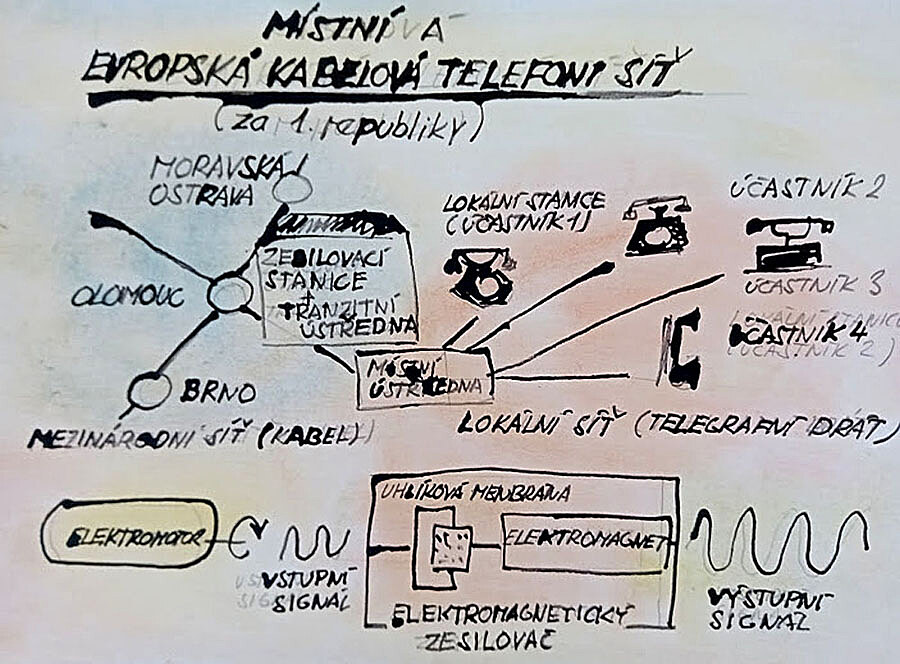 MÍSTNÍ A
EVROPSKÁ KABELOVÁ TELEFONí SÍŤ
(za 1. republiky)
MORAVSKÁ
OSTRAVA
LOKÁLNÍ STANICE
(ÚČASTNÍK 1)
ÚČASTNÍK 2
ZESILOVACÍ
STANICE
+
TRANZITNÍ
ÚSTŘEDNA
OLOMOUC
ÚČASTNÍK 3
LOKÁLNÍ STANICE
ÚČASTNÍK 4
(ÚČASTNÍK 2)
MÍSTNÍ
ÚSTŘEDNA
BRNO
MEZINÁRODNÍ SÍŤ (KABEL)
LOKÁLNÍ SÍŤ (TELEGRAFNÍ DRÁT)
UHLÍKOVÁ MENBRÁNA
ELEKTROMOTOR
ELEKTROMAGNET
VSTUPNÍ
SIGNÁL
VÝSTUPNÍ
SIGNÁL
ELEKTROMAGNETICKÝ
ZESILOVAČ